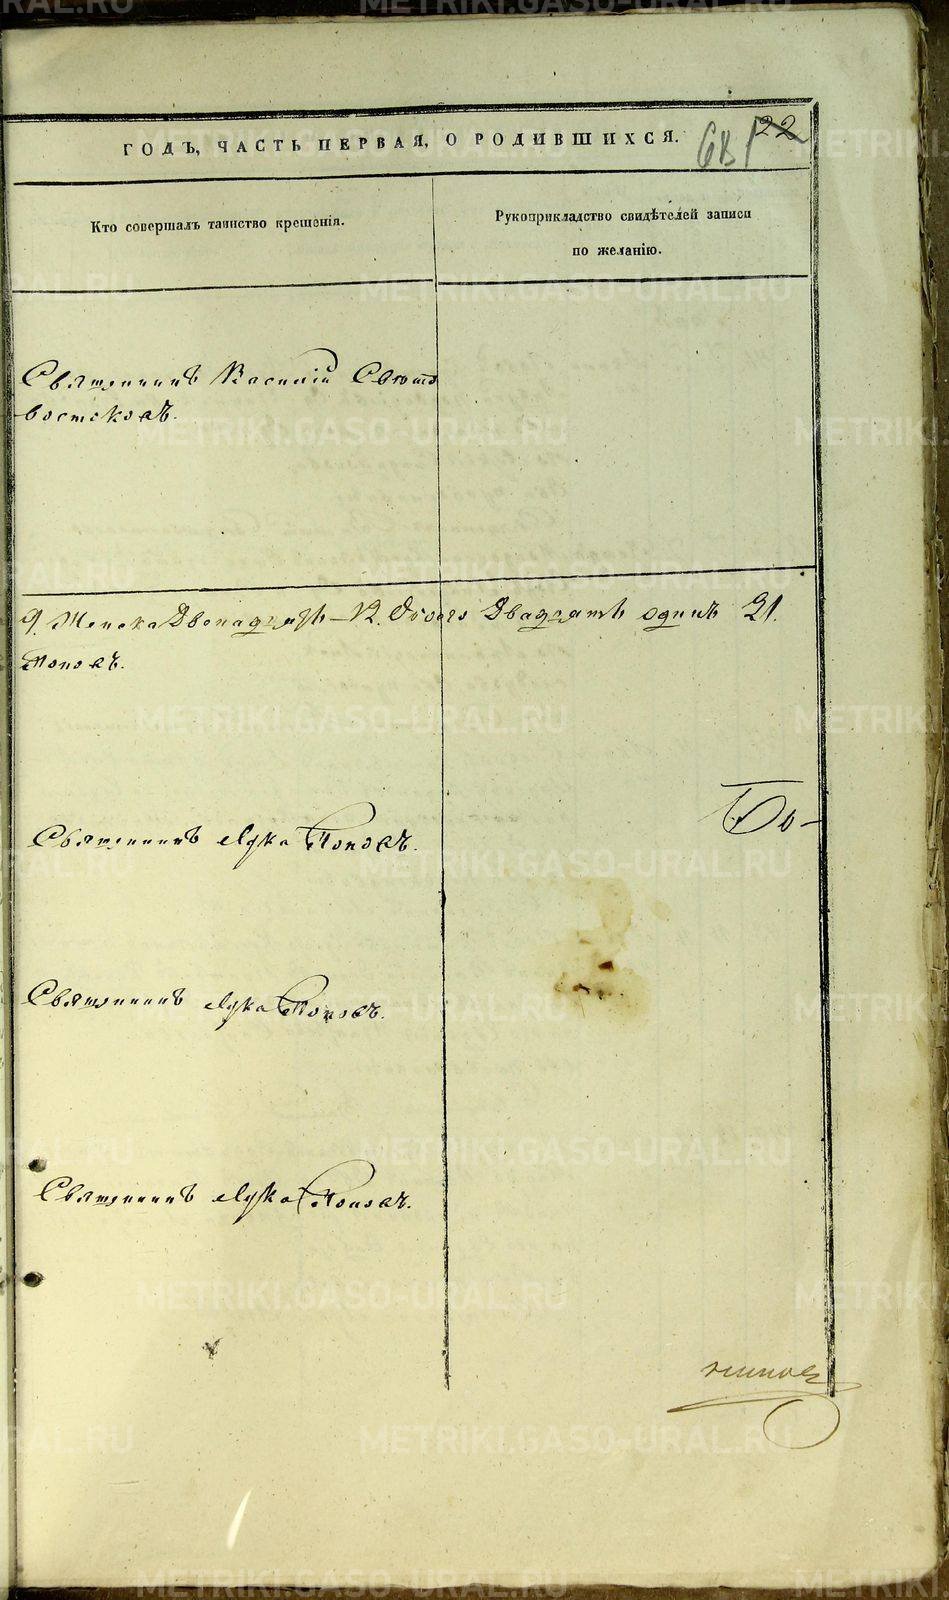 ГОДЪ, ЧАСТЬ ПЕРВАЯ, О РОДИВШИХСЯ.
681 22
Кто совершалъ таинство крещенія.
Рукоприкладство свидѣтелей записи
по желанію.
Священникъ Василій Свѣто
востоковъ.
9. Женска Двенадцать – 12. Обоего Двадцать одинъ 21.
Поповъ.
Бо-
Священникъ Лука Поповъ.
Священникъ Лука Поповъ.
Священникъ Лука Поповъ.
METRIKI.GASO-URAL.RU